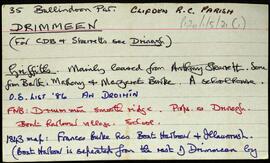 35 Ballindoon Par. CLIFDEN R.C. PARISH
DRIMMEEN
(For CDB & Skerretts see Drinagh)
Griffiths Mainly leased from Anthony Skerrett. Some
for Burke. Mahony & Margaret Burke. A schoolhouse.
O.S. List '86 An Droimín
FNB: Druim mín smooth ridge. Prop. as Drinagh.
Boat Harbour village. School.
1843 map: Frances Burke Rec Boat Harbour &
(Boat Harbour is separated from the rest of Drimmeen by